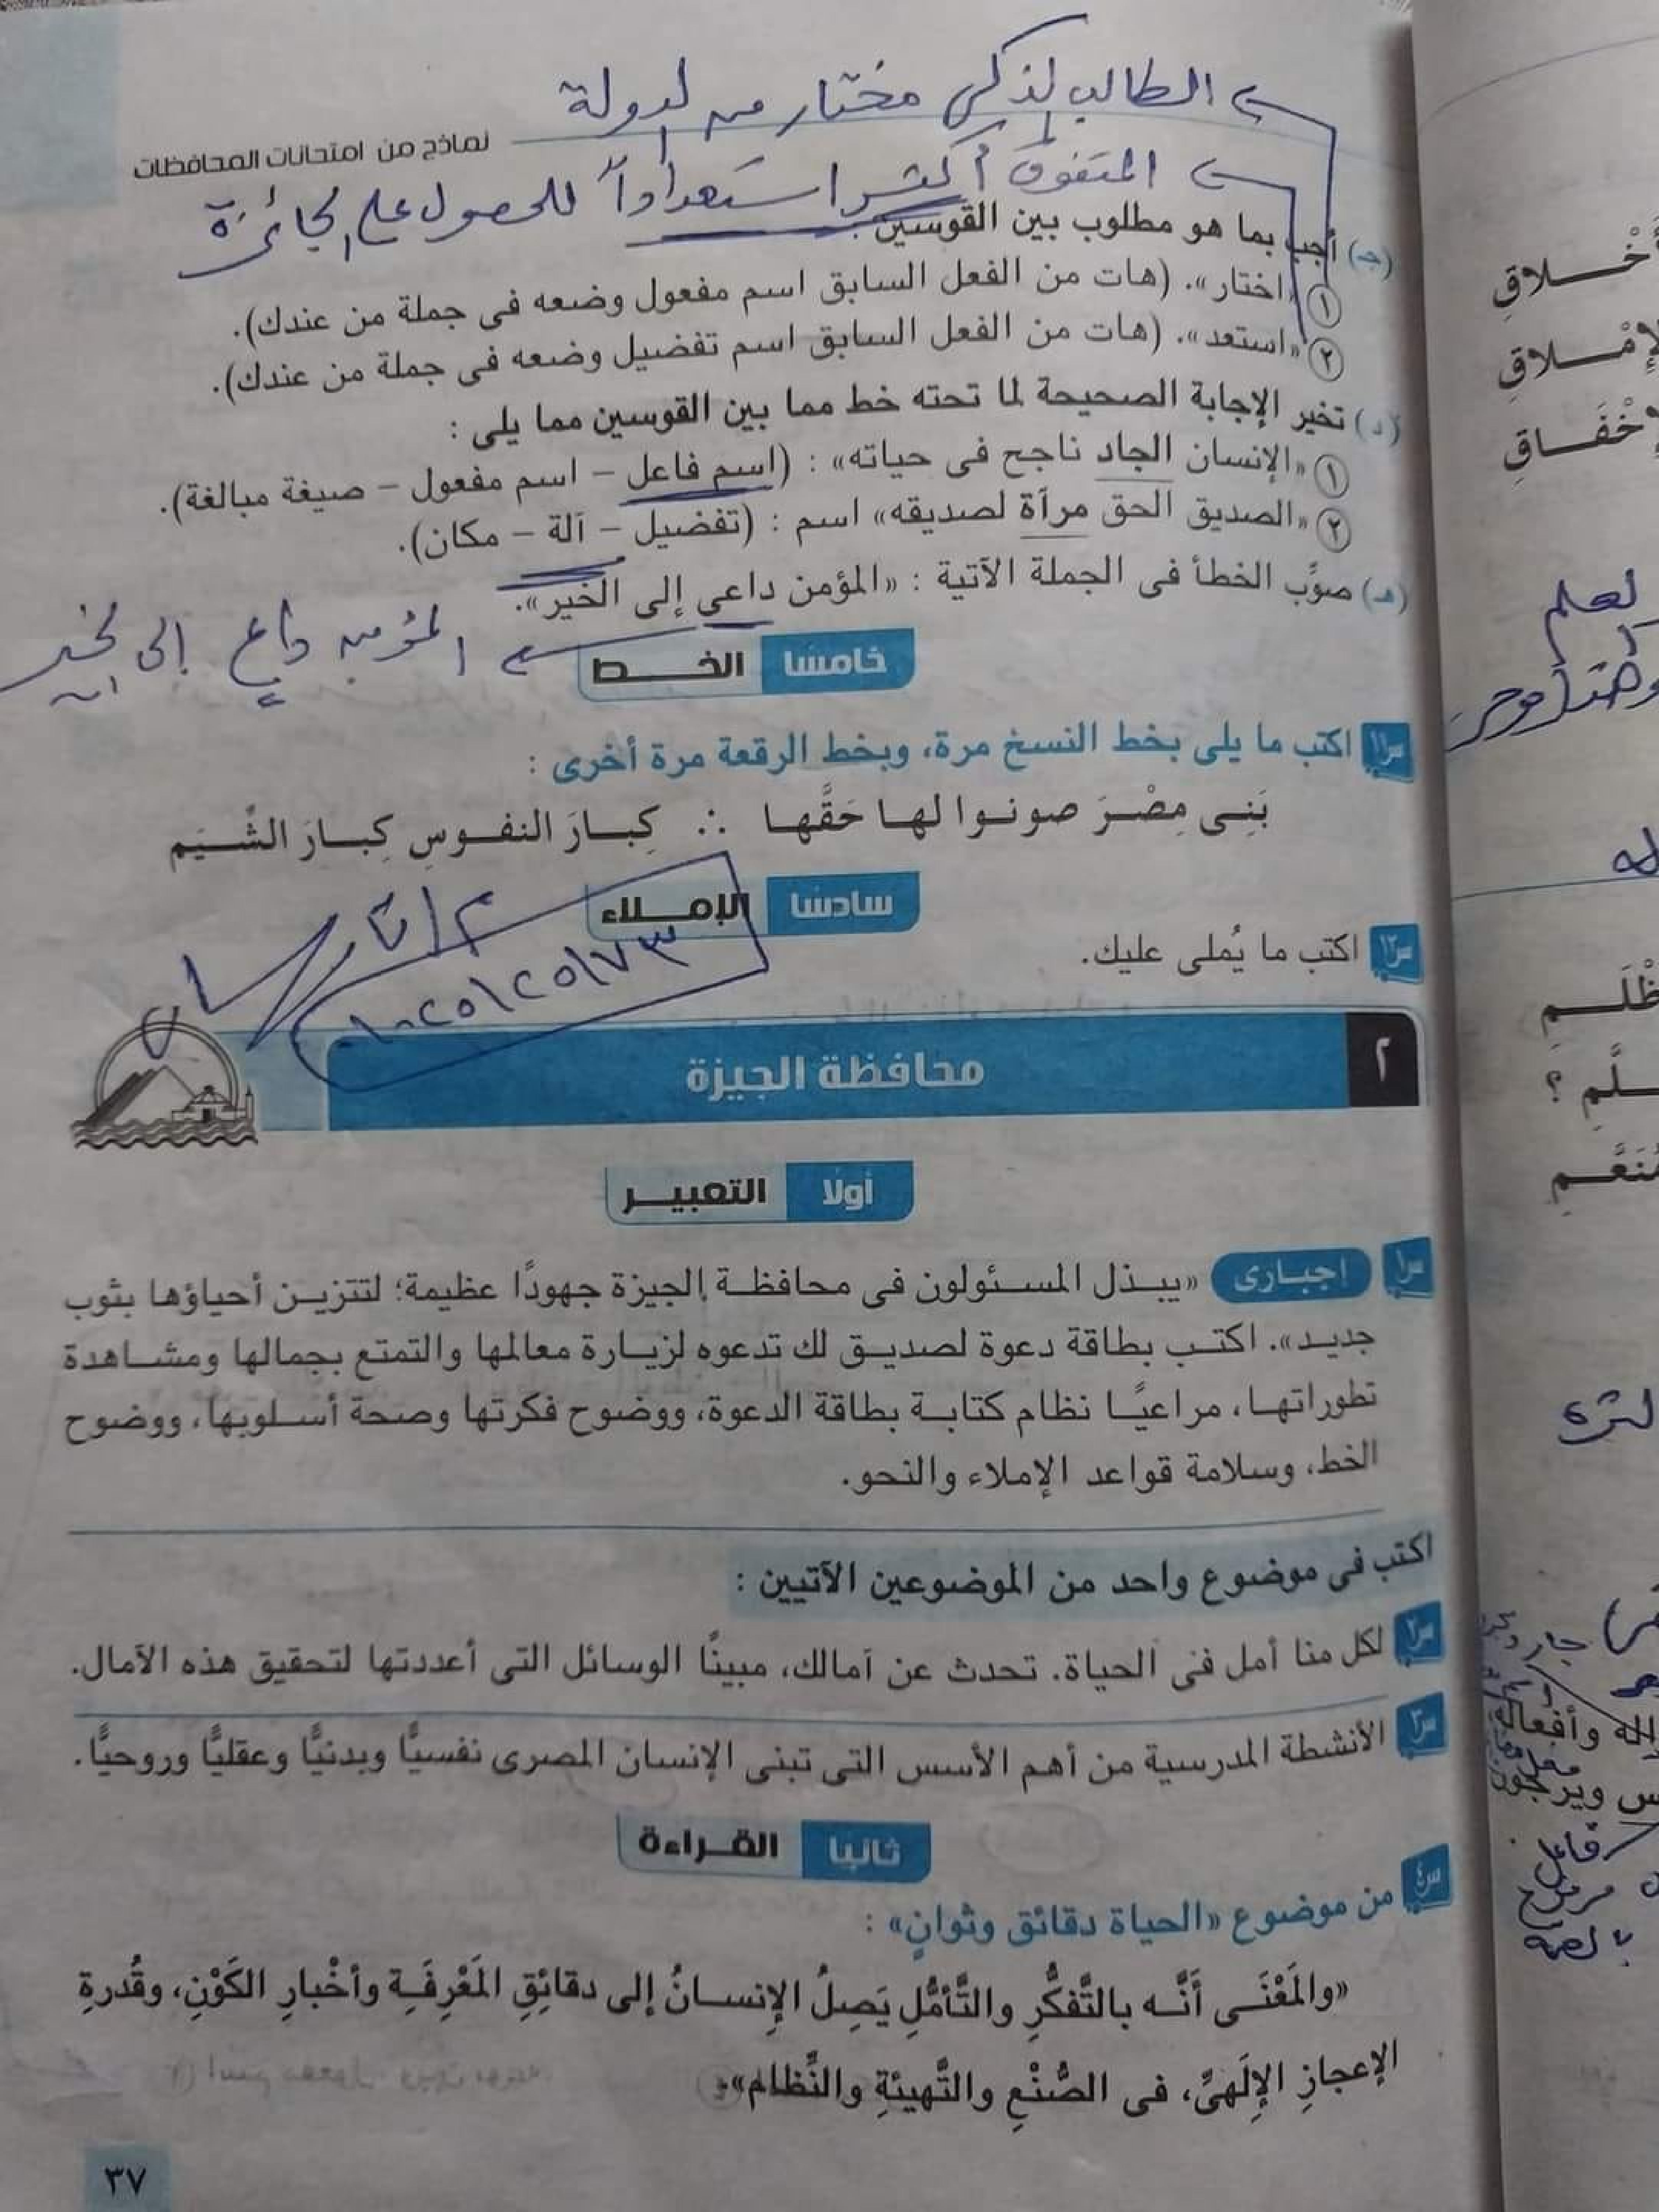 الطالب الذكى مختار من الدولة
نماذج من امتحانات المحافظات
المتفوق أكثر استعداداً للحصول على الجائزة
(جـ) أجب بما هو مطلوب بين القوسين :
١ «اختار». (هات من الفعل السابق اسم مفعول وضعه فى جملة من عندك).
٢ «استعد». (هات من الفعل السابق اسم تفضيل وضعه فى جملة من عندك).
(د) تخير الإجابة الصحيحة لما تحته خط مما بين القوسين مما يلى :
١ «الإنسان الجاد ناجح فى حياته» : (اسم فاعل – اسم مفعول – صيغة مبالغة).
٢ «الصديق الحق مرآة لصديقه» اسم : (تفضيل – آلة – مكان).
(هـ) صوِّب الخطأ فى الجملة الآتية : «المؤمن داعي إلى الخير».
المؤمن داعٍ إلى الخير
خامسًا الخـــط
س١١ اكتب ما يلى بخط النسخ مرة، وبخط الرقعة مرة أخرى :
بَنِى مِصْرَ صونوا لها حَقَّها ∴ كِبارَ النفوسِ كِبارَ الشِّيَم
سادسًا الإمـــلاء
س١٢ اكتب ما يُملى عليك.
٢ محافظة الجيزة
أولا التعبيـــر
س١ اجبارى «يبذل المسئولون فى محافظة الجيزة جهودًا عظيمة؛ لتتزين أحياؤها بثوب
جديد». اكتب بطاقة دعوة لصديق لك تدعوه لزيارة معالمها والتمتع بجمالها ومشاهدة
تطوراتها، مراعيًا نظام كتابة بطاقة الدعوة، ووضوح فكرتها وصحة أسلوبها، ووضوح
الخط، وسلامة قواعد الإملاء والنحو.
اكتب فى موضوع واحد من الموضوعين الآتيين :
س٢ لكل منا أمل فى الحياة. تحدث عن آمالك، مبينًا الوسائل التى أعددتها لتحقيق هذه الآمال.
س٣ الأنشطة المدرسية من أهم الأسس التى تبنى الإنسان المصرى نفسيًّا وبدنيًّا وعقليًّا وروحيًّا.
ثانيا القـــراءة
س٤ من موضوع «الحياة دقائق وثوانٍ» :
«والمَعْنَى أَنَّه بالتَّفكُّرِ والتَّأمُّلِ يَصِلُ الإِنسانُ إلى دقائِقِ المَعْرِفَةِ وأخْبارِ الكَوْنِ، وقُدرةِ
الإعجازِ الإِلَهىِّ، فى الصُّنْعِ والتَّهيئةِ والنِّظام».
٣٧
أَخْـــلاقِ
الإِمْـــلاقِ
إِخْفَــاقِ
العلم